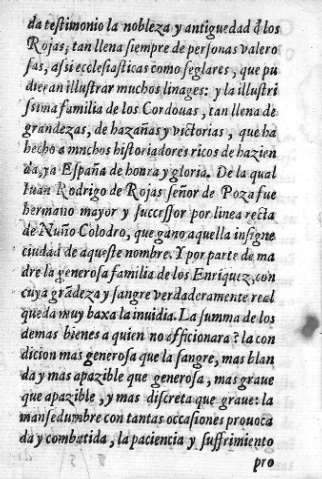 da testimonio la nobleza y antiguedad d̃ los
Rojas, tan llena siempre de personas valero
sas, assi ecclesiasticas como seglares, que pu
dieran illustrar muchos linages: y la illustri
ssima familia de los Cordouas, tan llena de
grandezas, de hazañas y victorias, que ha
hecho a mnchos historiadores ricos de hazien
da, ya España de honra y gloria. De la qual
Iuan Rodrigo de Rojas señor de Poza fue
hermano mayor y successor por linea recta
de Nuño Colodro, que gano aquella insigne
ciudad de aqueste nombre. Y por parte de ma
dre la generosa familia de los Enriquez, con
cuya grãdeza y sangre verdaderamente real
queda muy baxa la inuidia. La summa de los
demas bienes a quien no afficionara? la con
dicion mas generosa que la sangre, mas blan
da y mas apazible que generosa, mas graue
que apazible, y mas discreta que graue: la
mansedumbre con tantas occasiones prouoca
da y combatida, la paciencia y suffrimiento
pro